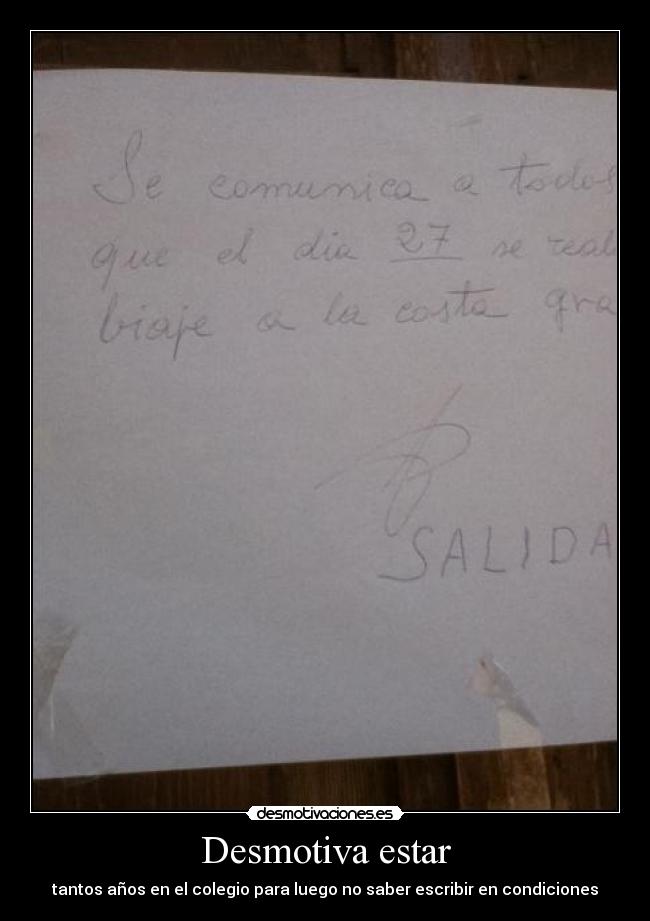 Se comunica a todos
que el dia 27 se real
biaje a la costa gra
SALIDA
desmotivaciones.es
Desmotiva estar
tantos años en el colegio para luego no saber escribir en condiciones